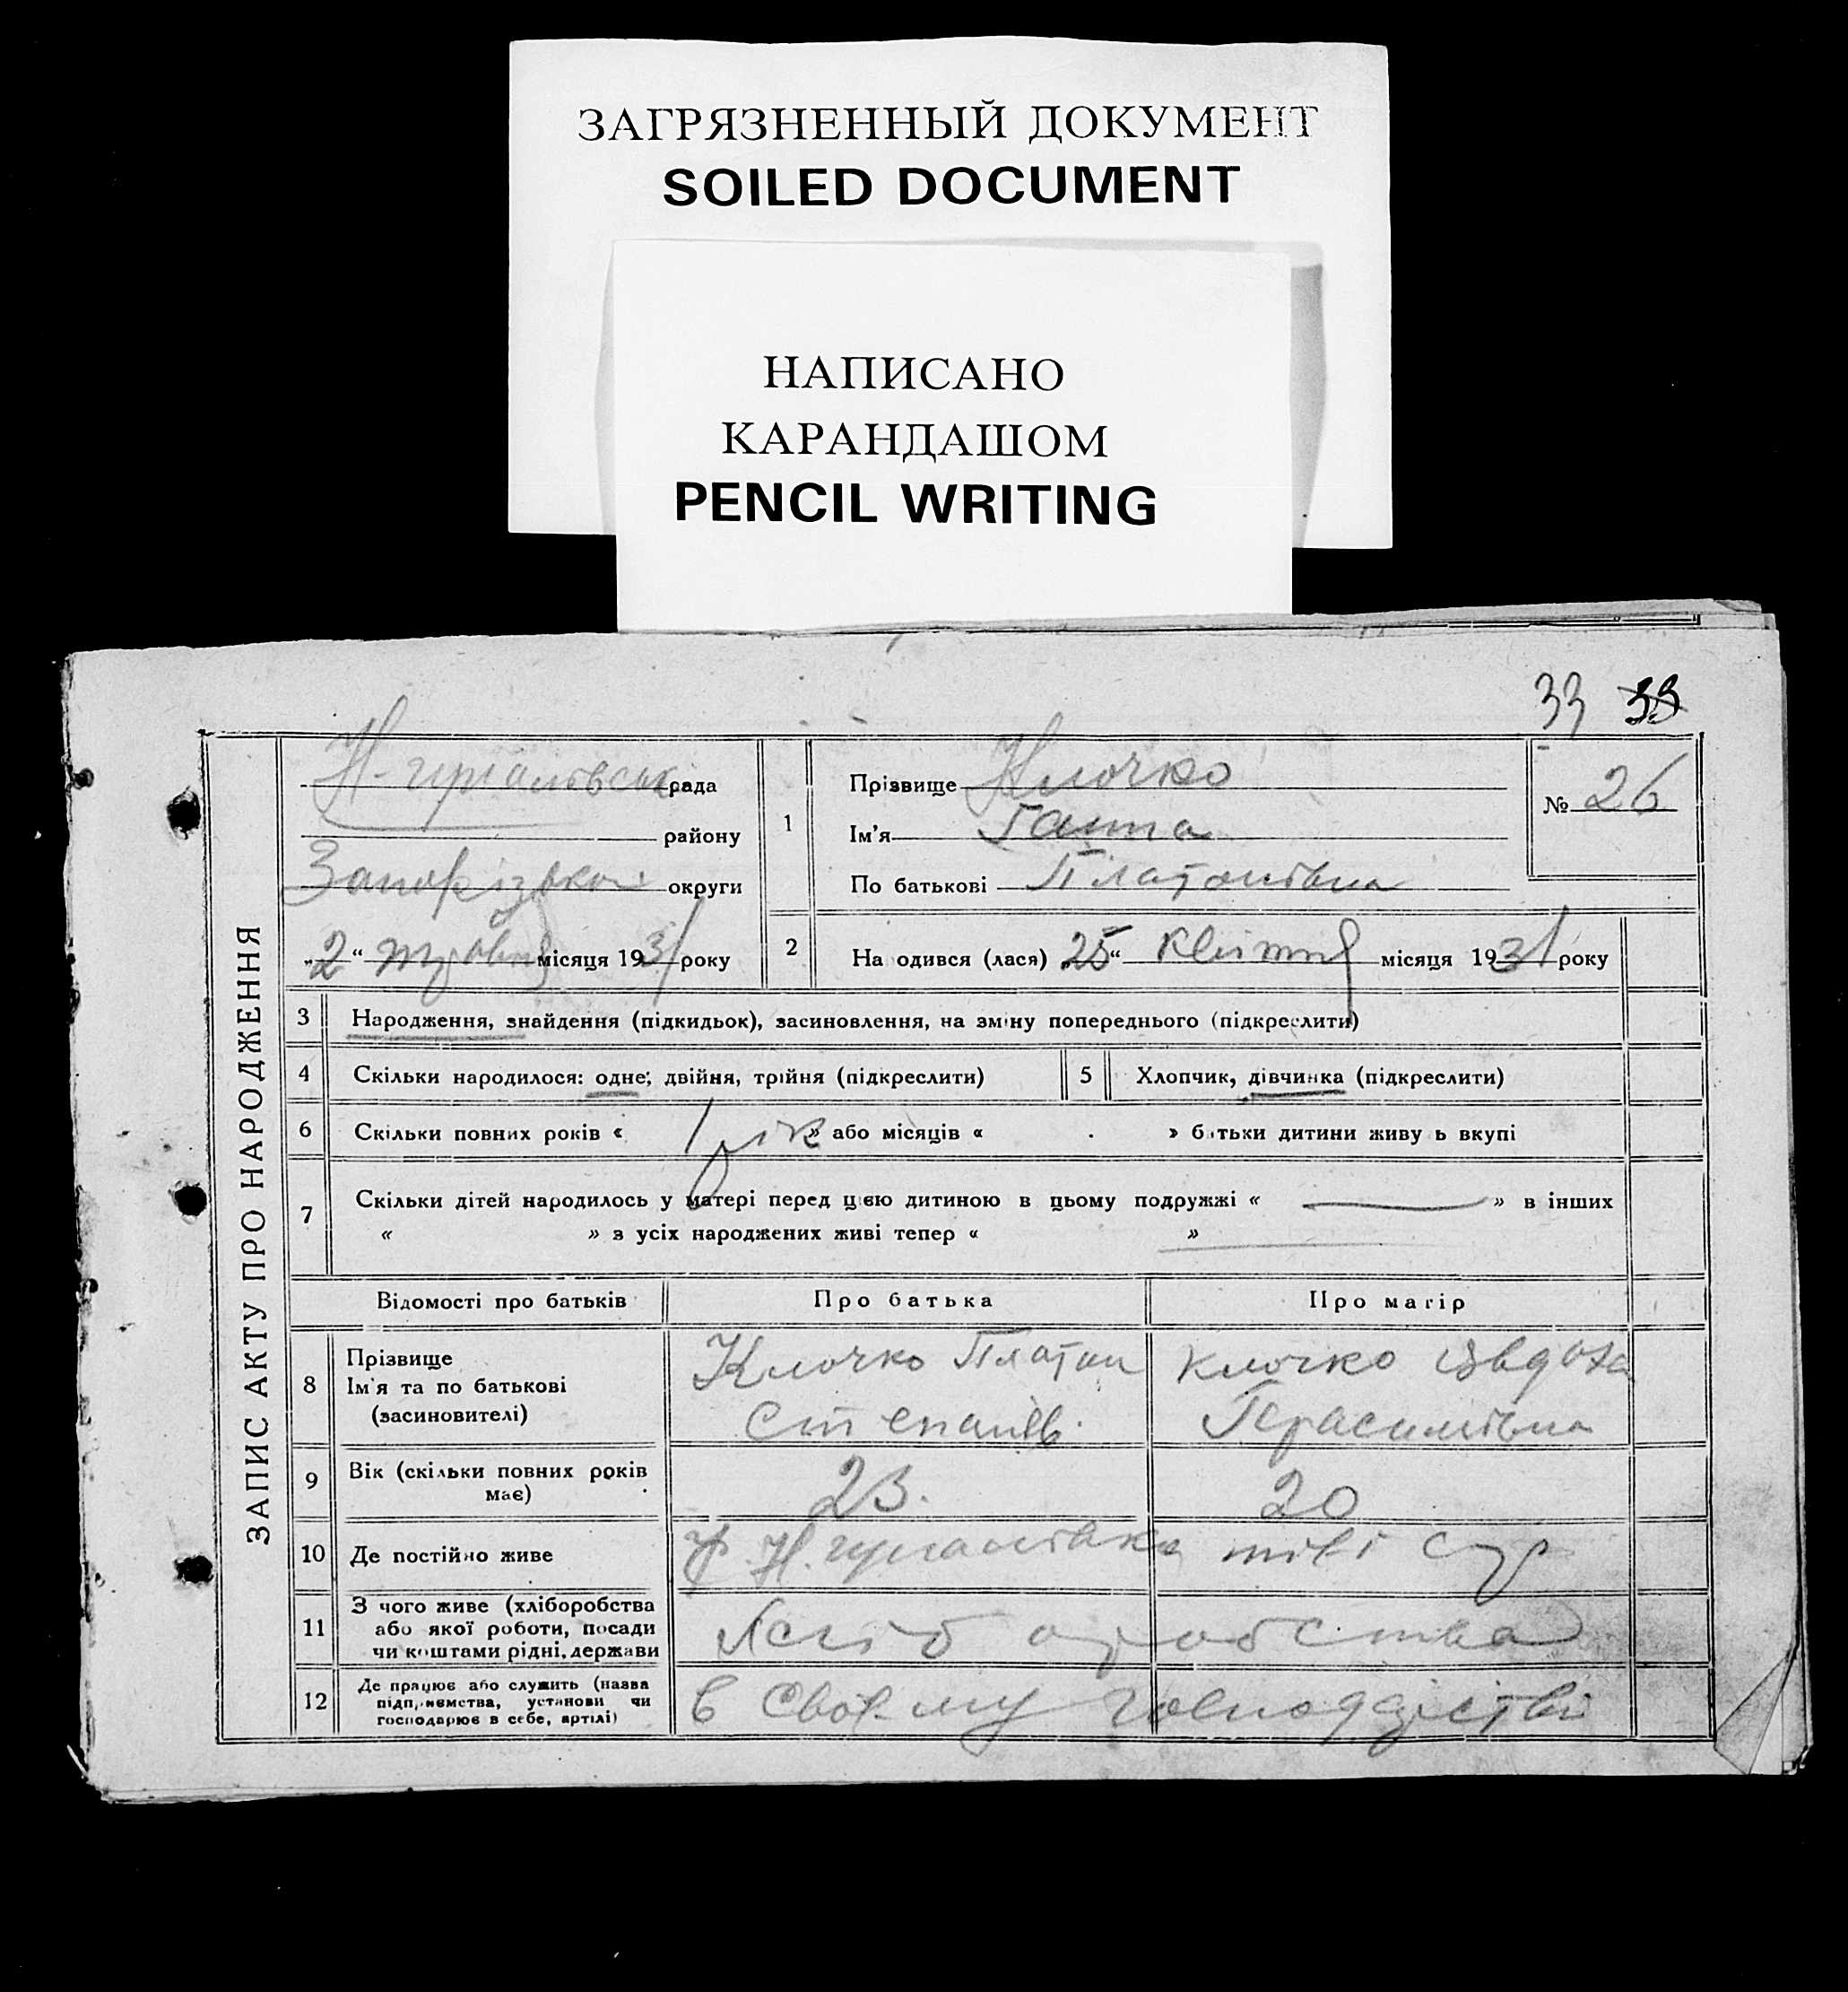 ЗАГРЯЗНЕННЫЙ ДОКУМЕНТ
SOILED DOCUMENT
НАПИСАНО
КАРАНДАШОМ
PENCIL WRITING
33 33
ЗАПИС АКТУ ПРО НАРОДЖЕННЯ
рада
району
Запорізької округи
„2“ травня місяця 1931 року
1
Прізвище Клочко
Ім'я Ганна
По батькові Платонівна
№ 26
2 На одився (лася) 25“ квітня місяця 1931 року
3 Народження, знайдення (підкидьок), засиновлення, на зміну попереднього (підкреслити)
4 Скільки народилося: одне; двійня, трійня (підкреслити)
5 Хлопчик, дівчинка (підкреслити)
6 Скільки повних років « 1 рік » або місяців « » батьки дитини живу ь вкупі
7 Скільки дітей народилось у матері перед цією дитиною в цьому подружжі « — » в інших
« » з усіх народжених живі тепер « »
Відомості про батьків Про батька Про матір
8 Прізвище
Ім'я та по батькові
(засиновителі)
Клочко Платон
Степанів.
Клочко Євдоха
Герасимівна
9 Вік (скільки повних років
має)
23. 20
10 Де постійно живе
11 З чого живе (хліборобства
або якої роботи, посади
чи коштами рідні, держави
хліборобства
12 Де працює або служить (назва
підприємства, установи чи
господарює в себе, артілі)
в своєму господарстві